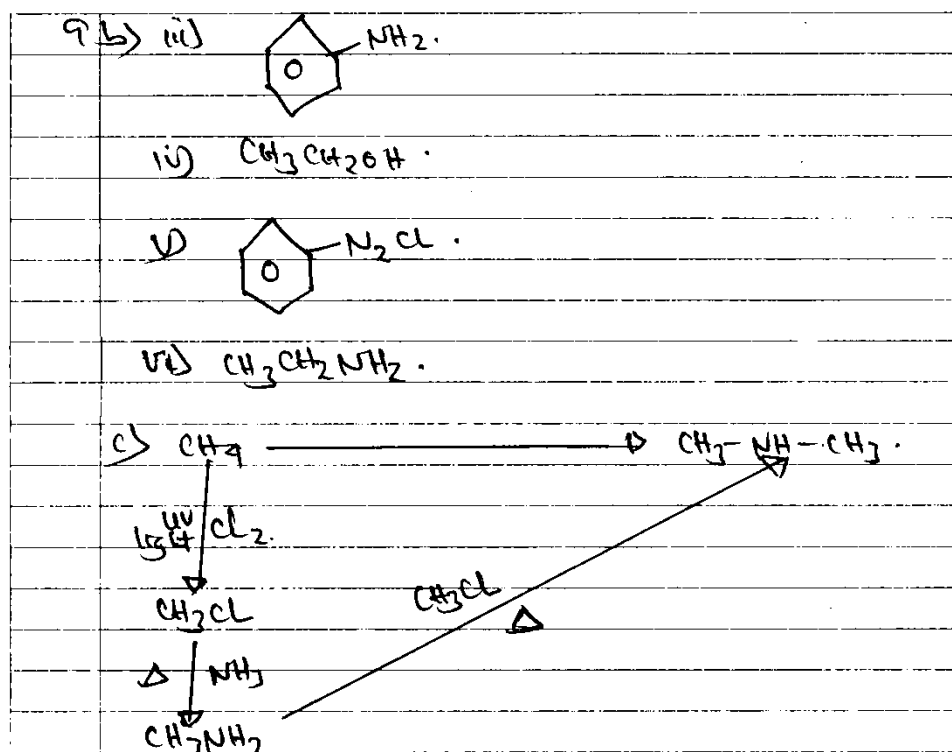 9 b) iii) NH2.
iv) CH3CH2OH.
v) N2Cl.
vi) CH3CH2NH2.
c) CH4 CH3-NH-CH3.
uv light Cl2.
CH3Cl CH3Cl
Δ
Δ NH3
CH3NH2